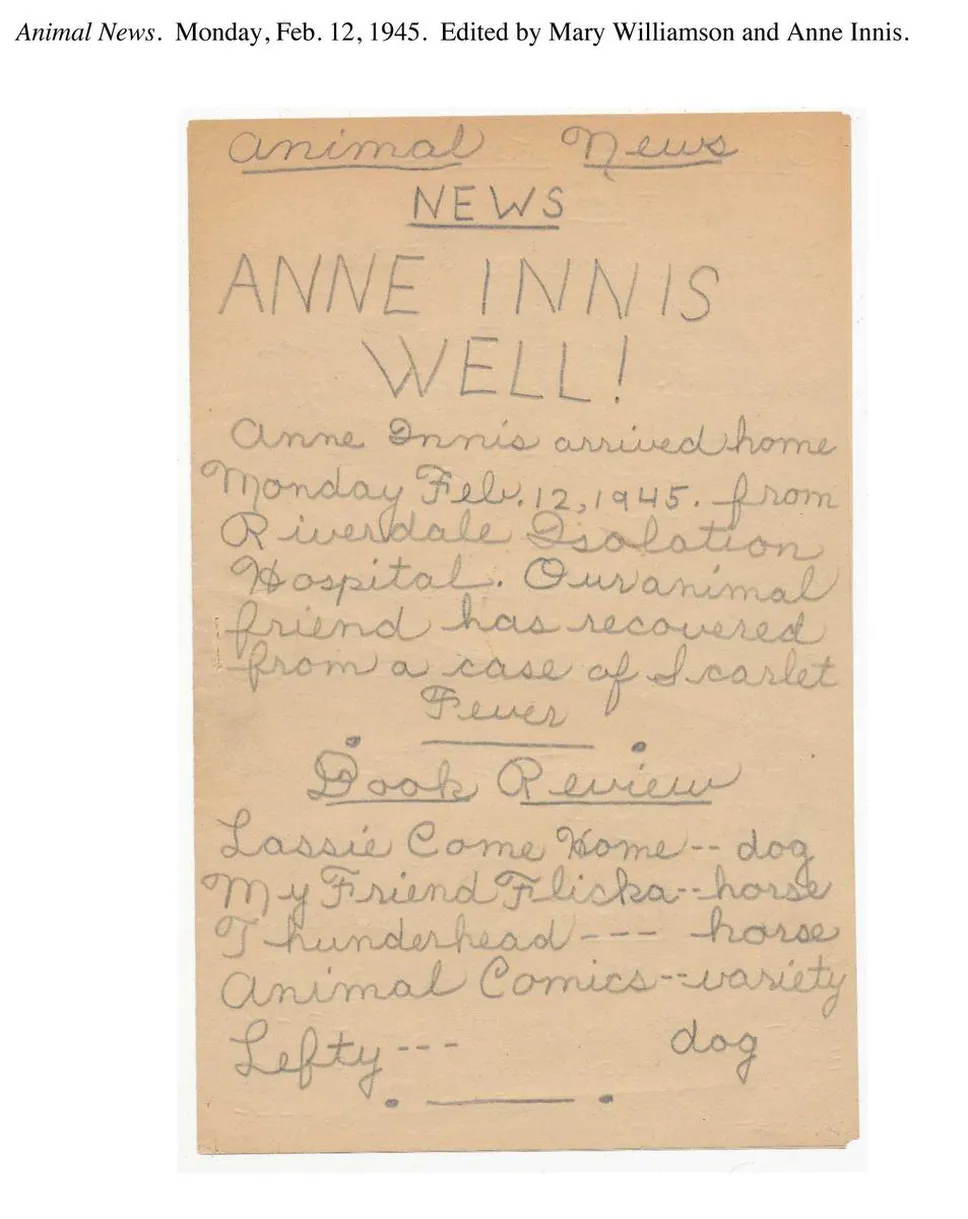 Animal News. Monday, Feb. 12, 1945. Edited by Mary Williamson and Anne Innis.
Animal News
NEWS
ANNE INNIS
WELL!
Anne Innis arrived home
Monday Feb. 12, 1945. from
Riverdale Isolation
Hospital. Our animal
friend has recovered
from a case of Scarlet
Fever
Book Review
Lassie Come Home -- dog
My Friend Flicka -- horse
Thunderhead --- horse
Animal Comics -- variety
Lefty --- dog